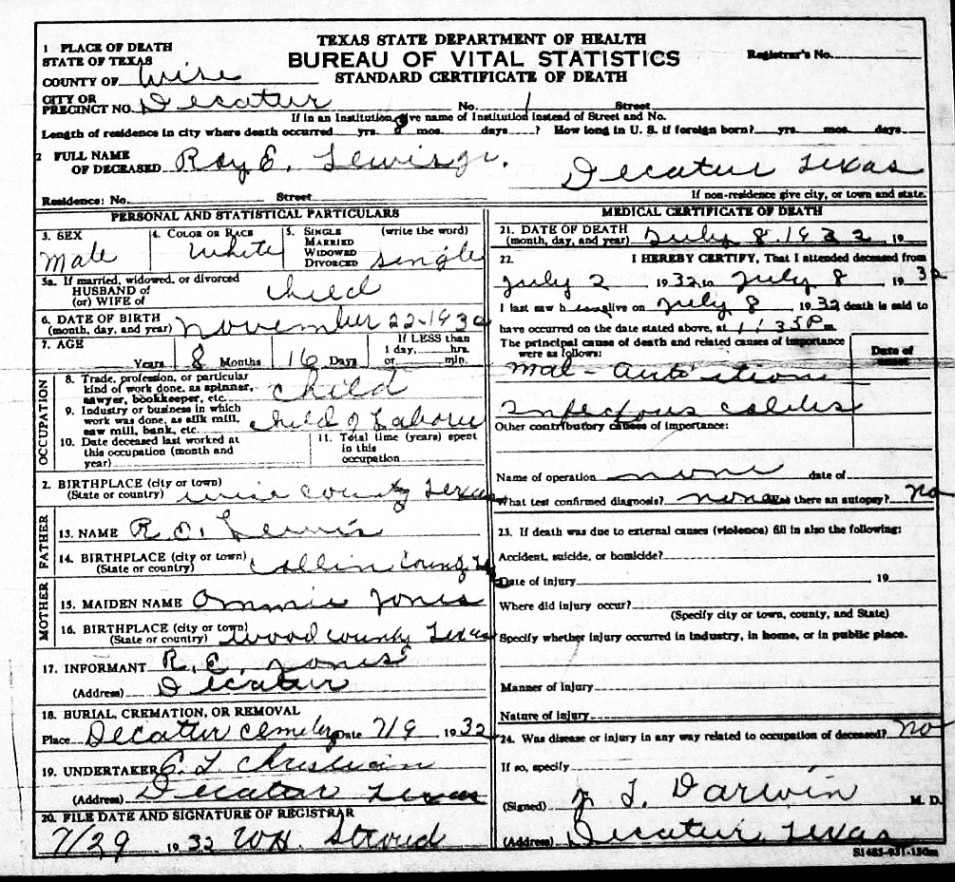 TEXAS STATE DEPARTMENT OF HEALTH
BUREAU OF VITAL STATISTICS
STANDARD CERTIFICATE OF DEATH
Registrar's No.
1 PLACE OF DEATH
STATE OF TEXAS
COUNTY OF Wise
CITY OR PRECINCT NO. Decatur No. 1 Street
If in an Institution, give name of Institution instead of Street and No.
Length of residence in city where death occurred yrs. 8 mos. days ? How long in U. S. if foreign born? yrs. mos. days
2 FULL NAME OF DECEASED Roy E. Lewis Jr. Decatur Texas
Residence: No. Street If non-residence give city, or town and state.
PERSONAL AND STATISTICAL PARTICULARS
3. SEX Male
4. COLOR OR RACE White
5. SINGLE MARRIED WIDOWED DIVORCED (write the word) single
5a. If married, widowed, or divorced
HUSBAND of (or) WIFE of child
6. DATE OF BIRTH (month, day, and year) November 22-193
7. AGE Years 8 Months 16 Days If LESS than 1 day, hrs. or min.
OCCUPATION
8. Trade, profession, or particular kind of work done, as spinner, sawyer, bookkeeper, etc. child
9. Industry or business in which work was done, as silk mill, saw mill, bank, etc. child of Laborer
10. Date deceased last worked at this occupation (month and year)
11. Total time (years) spent in this occupation
2. BIRTHPLACE (city or town) (State or country) wise county Texas
FATHER
13. NAME R. E. Lewis
14. BIRTHPLACE (city or town) (State or country) Collin County
MOTHER
15. MAIDEN NAME Ommie Jones
16. BIRTHPLACE (city or town) (State or country) Wood county Texas
17. INFORMANT R. E. Jones
(Address) Decatur
18. BURIAL, CREMATION, OR REMOVAL
Place Decatur Date 7/9 1932
19. UNDERTAKER C. L. Christian
(Address) Decatur Texas
20. FILE DATE AND SIGNATURE OF REGISTRAR
7/29 1932 W.H. Stroud
MEDICAL CERTIFICATE OF DEATH
21. DATE OF DEATH (month, day, and year) July 8, 1932 19
22. I HEREBY CERTIFY, That I attended deceased from
July 2 1932 to July 8 1932
I last saw h im alive on July 8 1932 death is said to
have occurred on the date stated above, at 1:35 P m.
The principal cause of death and related causes of importance were as follows:
Date of onset
Mal-
Infectious
Other contributory causes of importance:
Name of operation none date of
What test confirmed diagnosis? none Was there an autopsy? No
23. If death was due to external causes (violence) fill in also the following:
Accident, suicide, or homicide?
Date of injury 19
Where did injury occur?
(Specify city or town, county, and State)
Specify whether injury occurred in industry, in home, or in public place.
Manner of injury
Nature of injury
24. Was disease or injury in any way related to occupation of deceased? No
If so, specify
(Signed) J. T. Darwin M. D.
(Address) Decatur, Texas